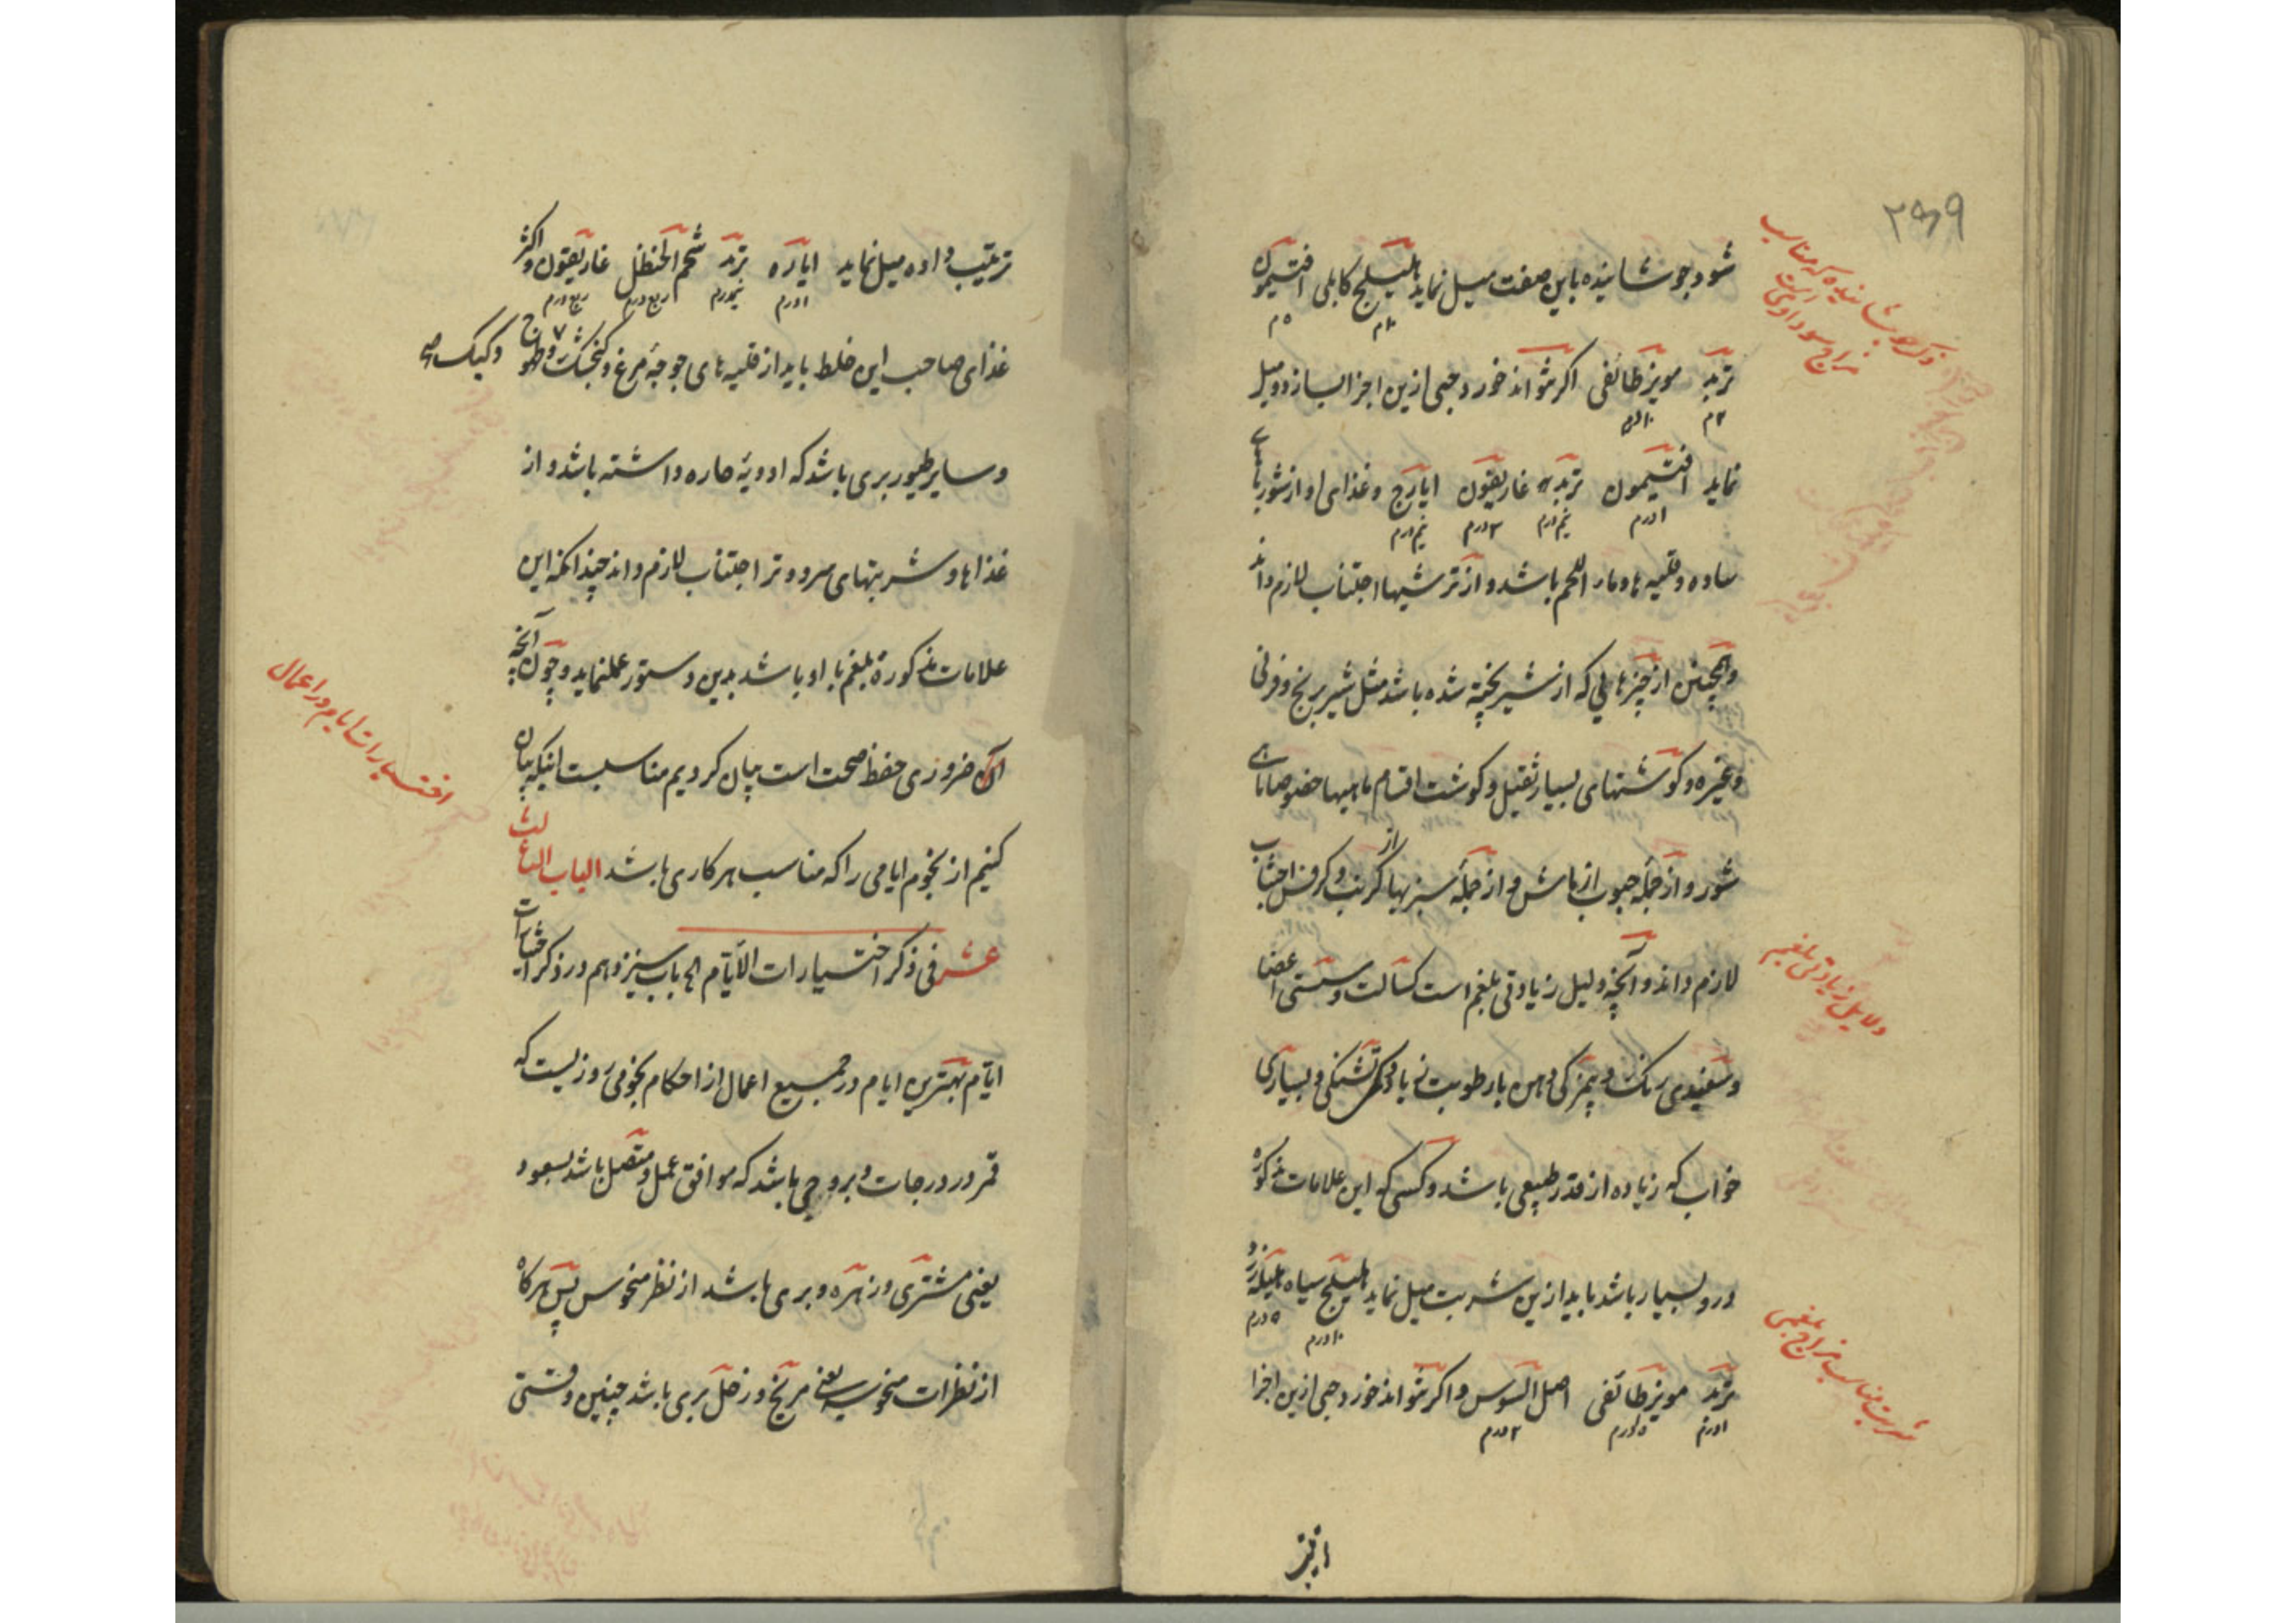 ۲۶۹
ذکر جوشانیده که مناسب
مزاج سوداوی است
شود جوشانیده باین صفت میل نماید هلیلج کابلی افتیمون
۱۰م ۵م
تربد مویز طائفی اکر نتواند خورد حبی ازین اجزا بسازد و میل
۲م
نماید افتیمون تربد غاریقون ایارج و غذای او از شوربای
۱درم نیمدرم ۲درم نیمدرم
ساده و قلیه ها و ماء اللحم باشد و از ترشیها اجتناب لازم داند
و همچنین از چیزهایی که از شیر پخته شده باشد مثل شیربرنج و فرنی
و غیره و کوشتهای بسیار ثقیل و کوشت اقسام ماهیها خصوصا ماهی
شور و از جمله حبوب از ماش و از جمله سبزیها از کرنب و کرفس اجتناب
لازم داند و آنچه دلیل زیادتی بلغم است کسالت و سستی اعضا
دلایل زیادتی بلغم
و سفیدی رنک و بیمزکی دهن با رطوبت زیاد و کمی تشنکی و بسیاری
خواب که زیاده از قدر طبیعی باشد و کسی که این علامات مذکوره
درو بسیار باشد باید ازین شربت میل نماید هلیلج سیاه هلیله زرد
۱۰درم ۵درم
شربت مناسب مزاج بلغمی
تربد مویز طائفی اصل السوس و اکر نتواند خورد حبی ازین اجزا
۱درم ۲درم
ترتیب داده میل نماید ایاره تربد شحم الحنظل غاریقون و اکثر
۱درم نیمدرم ربع درم ربع درم
غذای صاحب این خلط باید از قلیه های جوجه مرغ و کنجشک و طیهوج و کبک
و سایر طیور بری باشد که ادویه حاره داشته باشد و از
غذاها و شربتهای سرد و تر اجتناب لازم داند چندانکه این
علامات مذکوره بلغم با او باشد بدین دستور عمل نماید و چون آنچه
آن ضروری حفظ صحت است بیان کردیم مناسبست اینکه بیان
اختیارات ایام در اعمال
کنیم از نجوم ایامی را که مناسب هر کاری باشد الباب الثالث
عشر فی ذکر اختیارات الأیام الح باب سیزدهم در ذکر اختیارات
ایام بهترین ایام در جمیع اعمال از احکام نجومی روزیست که
قمر در درجات و بروجی باشد که موافق عمل و متصل باشد بسعود
یعنی مشتری و زهره و بری باشد از نظر منحوس پس هرکاه
از نظرات منحوسه یعنی مریخ و زحل بری باشد چنین وقتی